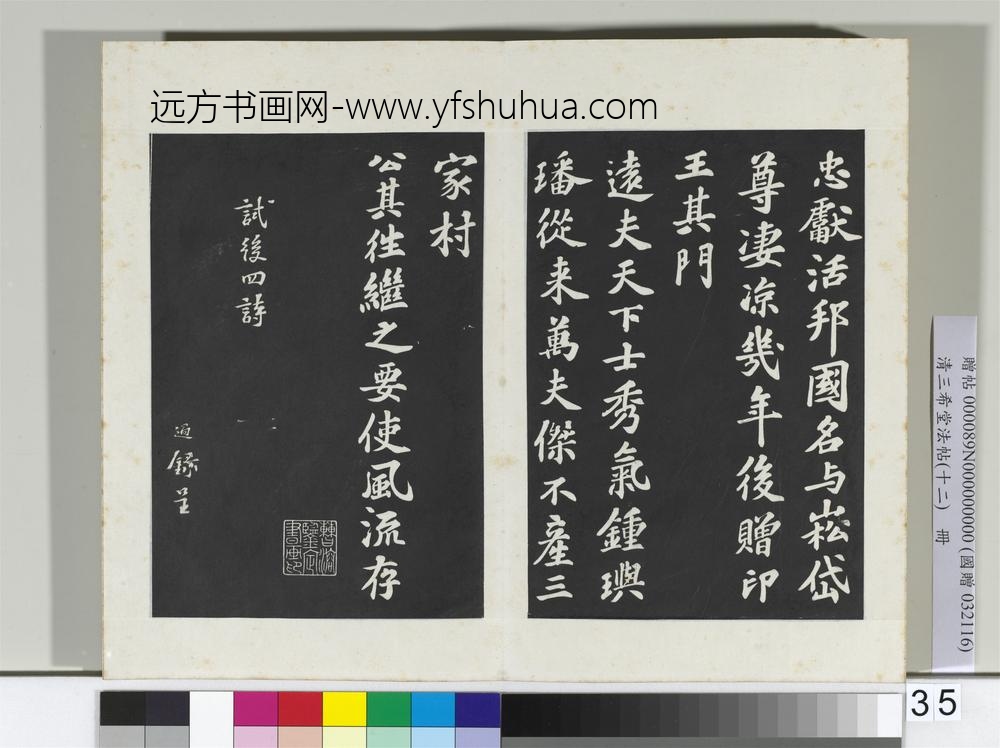 远方书画网-www.yfshuhua.com
忠獻活邦國名与崧岱
尊淒凉幾年後贈印
王其門
遠夫天下士秀氣鍾璵
璠從来萬夫傑不產三
家村
公其徃繼之要使風流存
試後四詩
過錄呈
贈帖 000089N000000000 (國贈 032116)
清三希堂法帖(十二) 冊
35